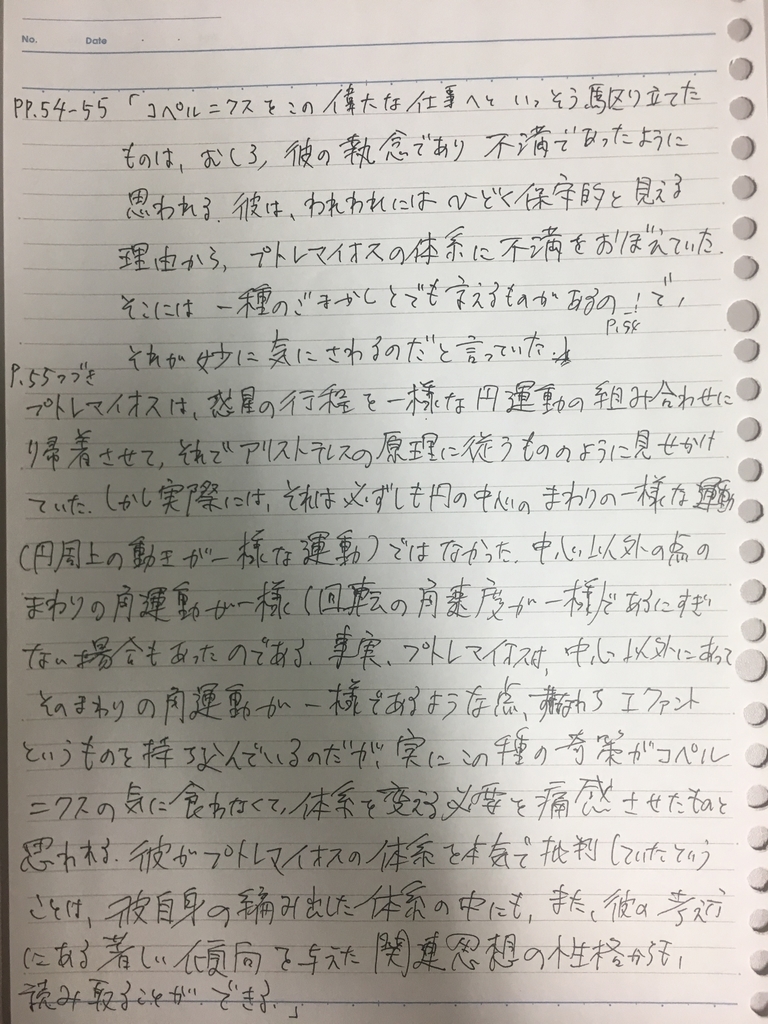 No. Date ・ ・
PP.54-55 「コペルニクスをこの偉大な仕事へといっそう駆り立てた
ものは、むしろ、彼の執念であり 不満であったように
思われる。彼は、われわれにはひどく保守的と見える
理由から、プトレマイオスの体系に不満をおぼえていた。
そこには一種のごまかしとでも言えるものがあるの!で、
P.54
それが妙に気にさわるのだと言っていた。
P.55つづき
プトレマイオスは、惑星の行程を一様な円運動の組み合わせに
帰着させて、それでアリストテレスの原理に従うもののように見せかけ
ていた。しかし実際には、それは必ずしも円の中心のまわりの一様な運動
(円周上の動きが一様な運動)ではなかった。中心以外の点の
まわりの角運動が一様(回転の角速度が一様)であるにすぎ
ない場合もあったのである。事実、プトレマイオスは、中心以外にあって
そのまわりの角運動が一様であるような点、すなわち エファント
というものを持ち込んでいるのだが、実にこの種の奇策がコペル
ニクスの気に食わなくて、体系を変える必要を痛感させたものと
思われる。彼がプトレマイオスの体系を本気で批判していたという
ことは、彼自身の編み出した体系の中にも、また、彼の考え方
にある著しい傾向を与えた関連思想の性格からも、
読み取ることができる。」